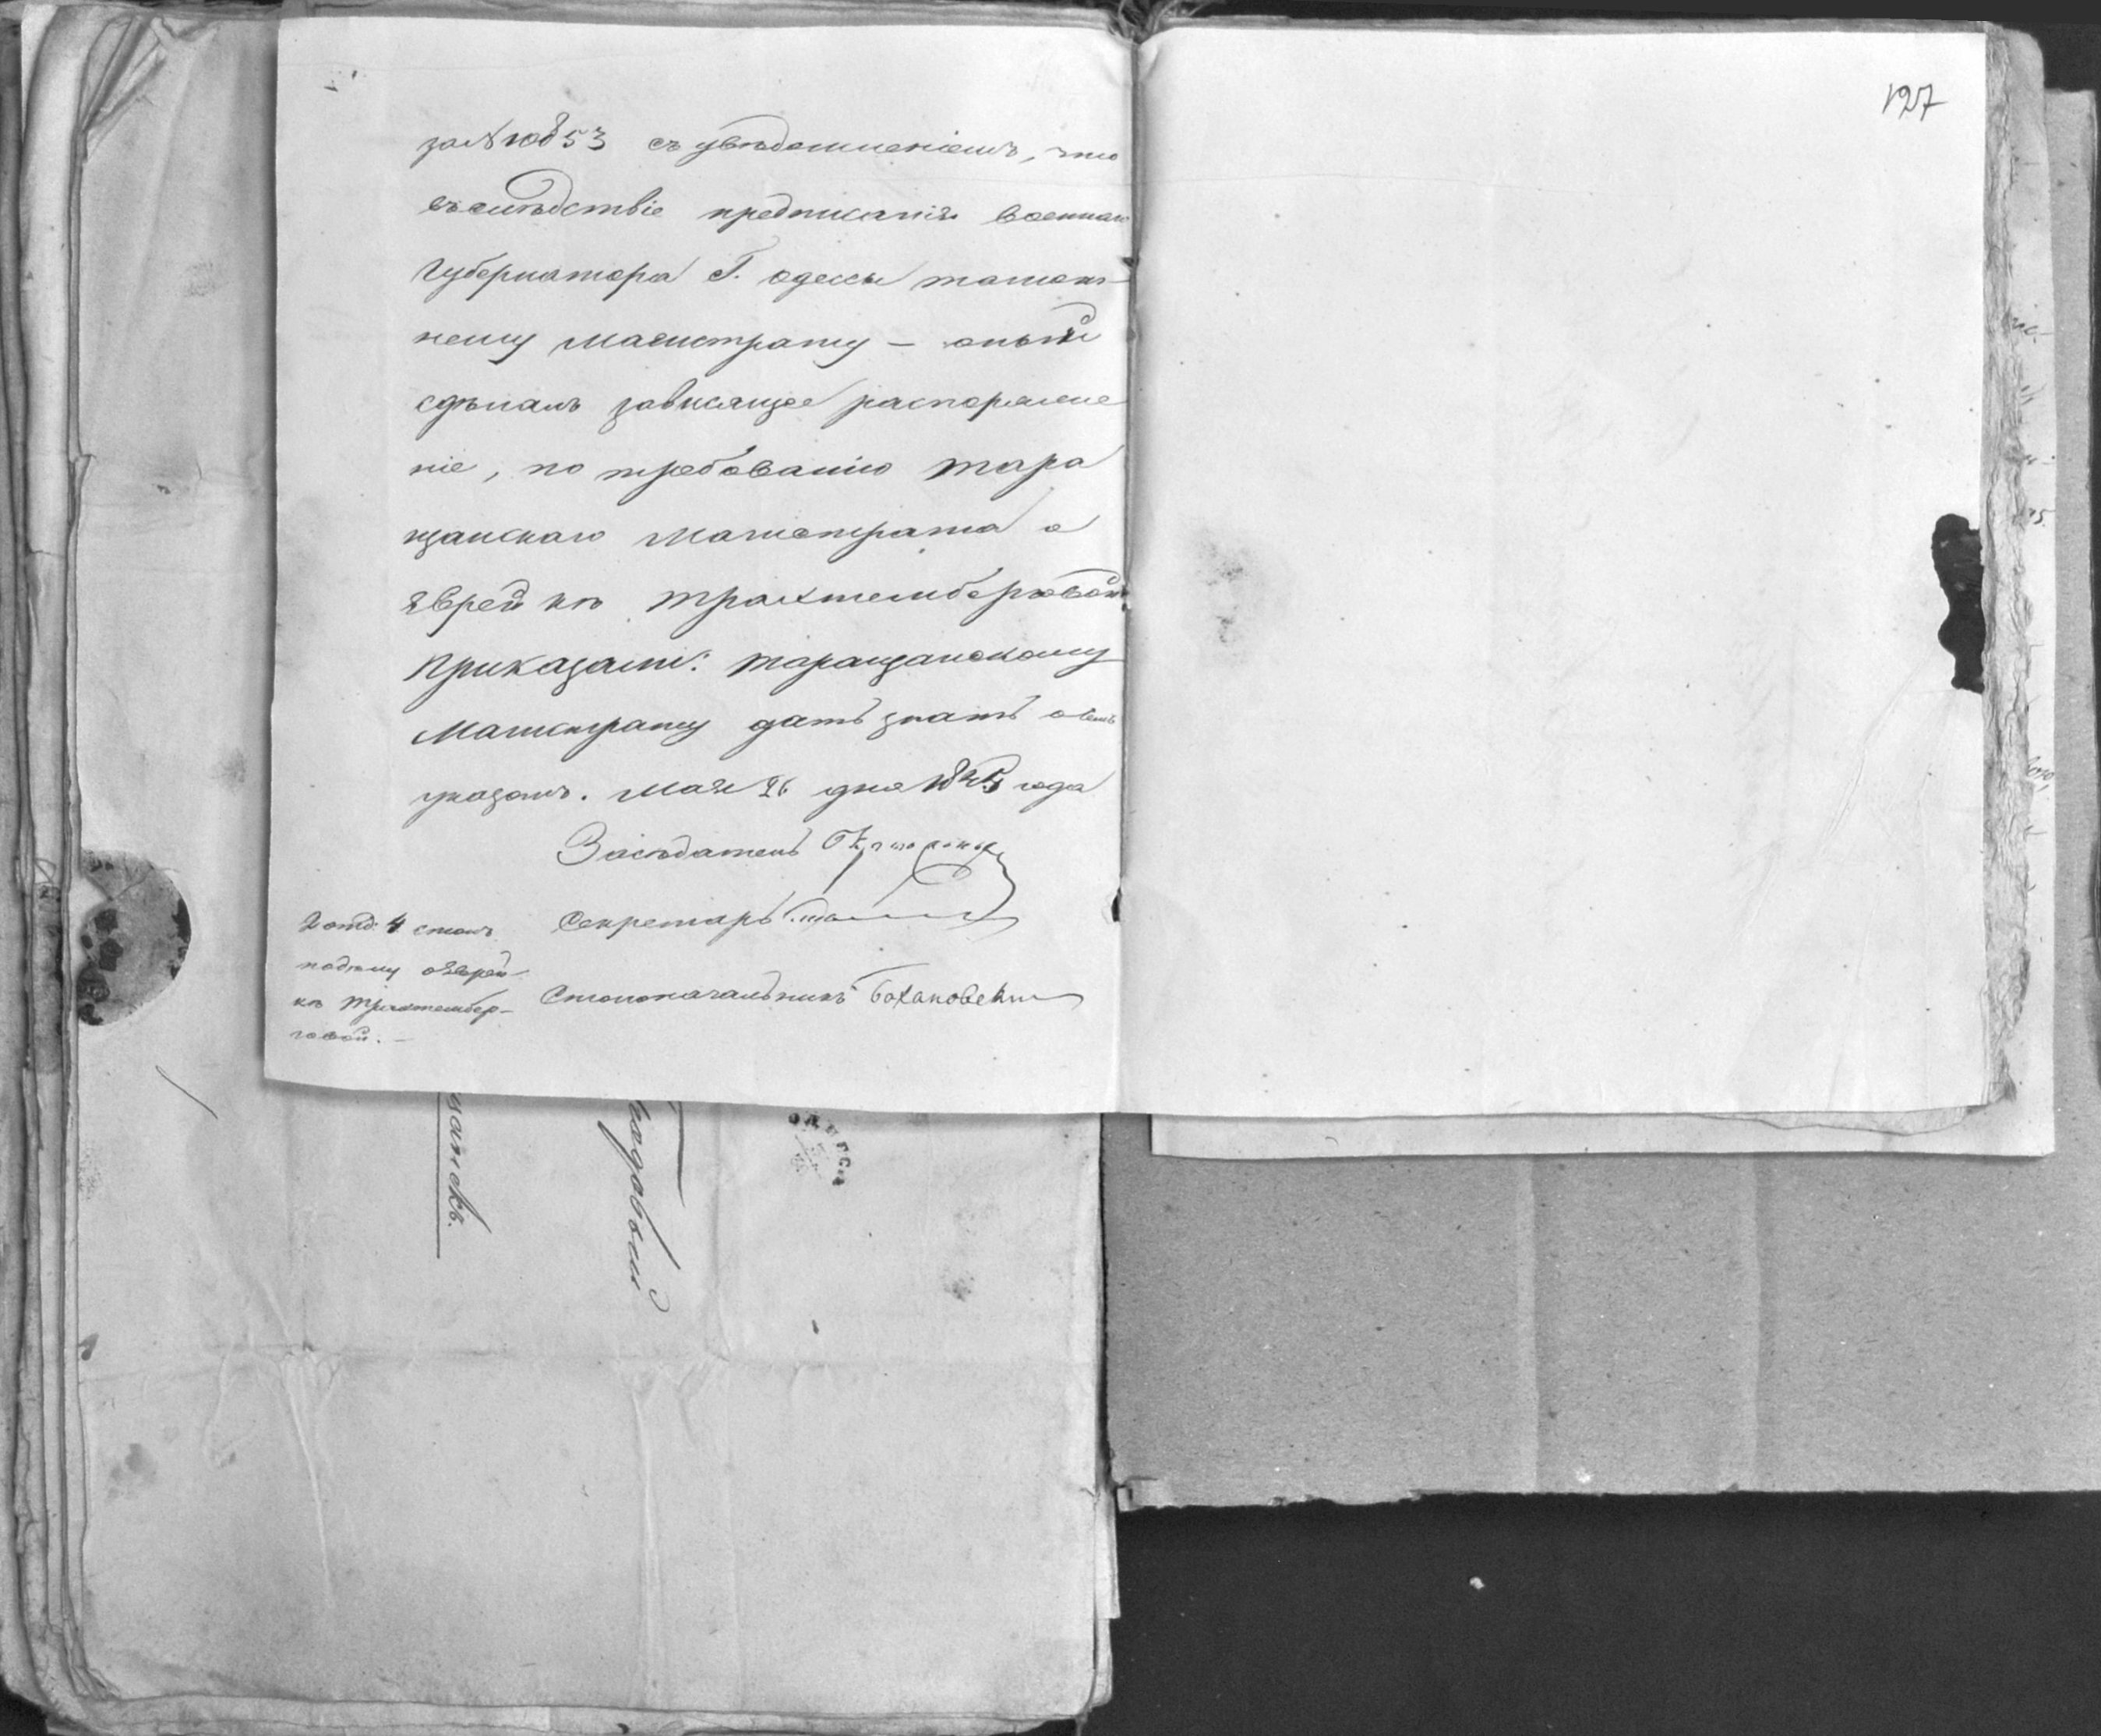 127
за № 10853 съ увѣдомленіемъ, что
въ слѣдствіе предписанія военнаго
Губернатора Г. Одессы тамош-
нему магистрату – оный
сдѣлалъ зависящее распоряже
ніе, по требованію Тара
щанскаго магистрата о
Еврейкѣ Трахтемберговой
Приказали: Таращанскому
Магистрату дать знать о семъ
указомъ. Мая 26 дня года
Засѣдатель
Секретарь
Столоначальникъ Бохановскій
2 отд: 4 столъ
по дѣлу о Еврей-
кѣ Трахтембер-
говой. –